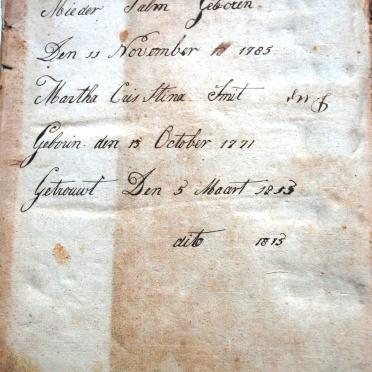 Mieder Salm Geboren
Den 11 November 1785
Martha Cris Stina Smit
Geborin den 13 October 1771
Getrouwt Den 5 Maart 1813
dito 1813